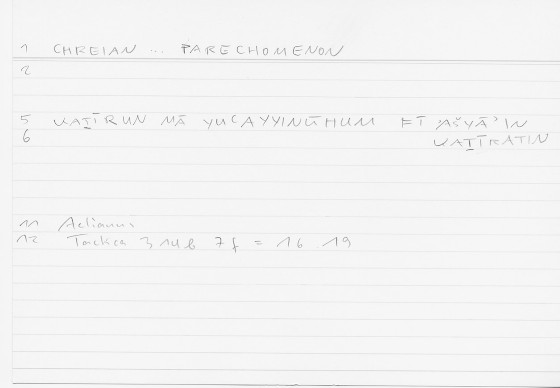 1 CHREIAN ... PARECHOMENON
2
5 KAṮĪRUN MĀ YUCAYYINŪHUM FĪ 'AŠYĀ'IN
6 KAṮĪRATIN
11 Aelianus
12 Tactica 3 7 f = 16 19